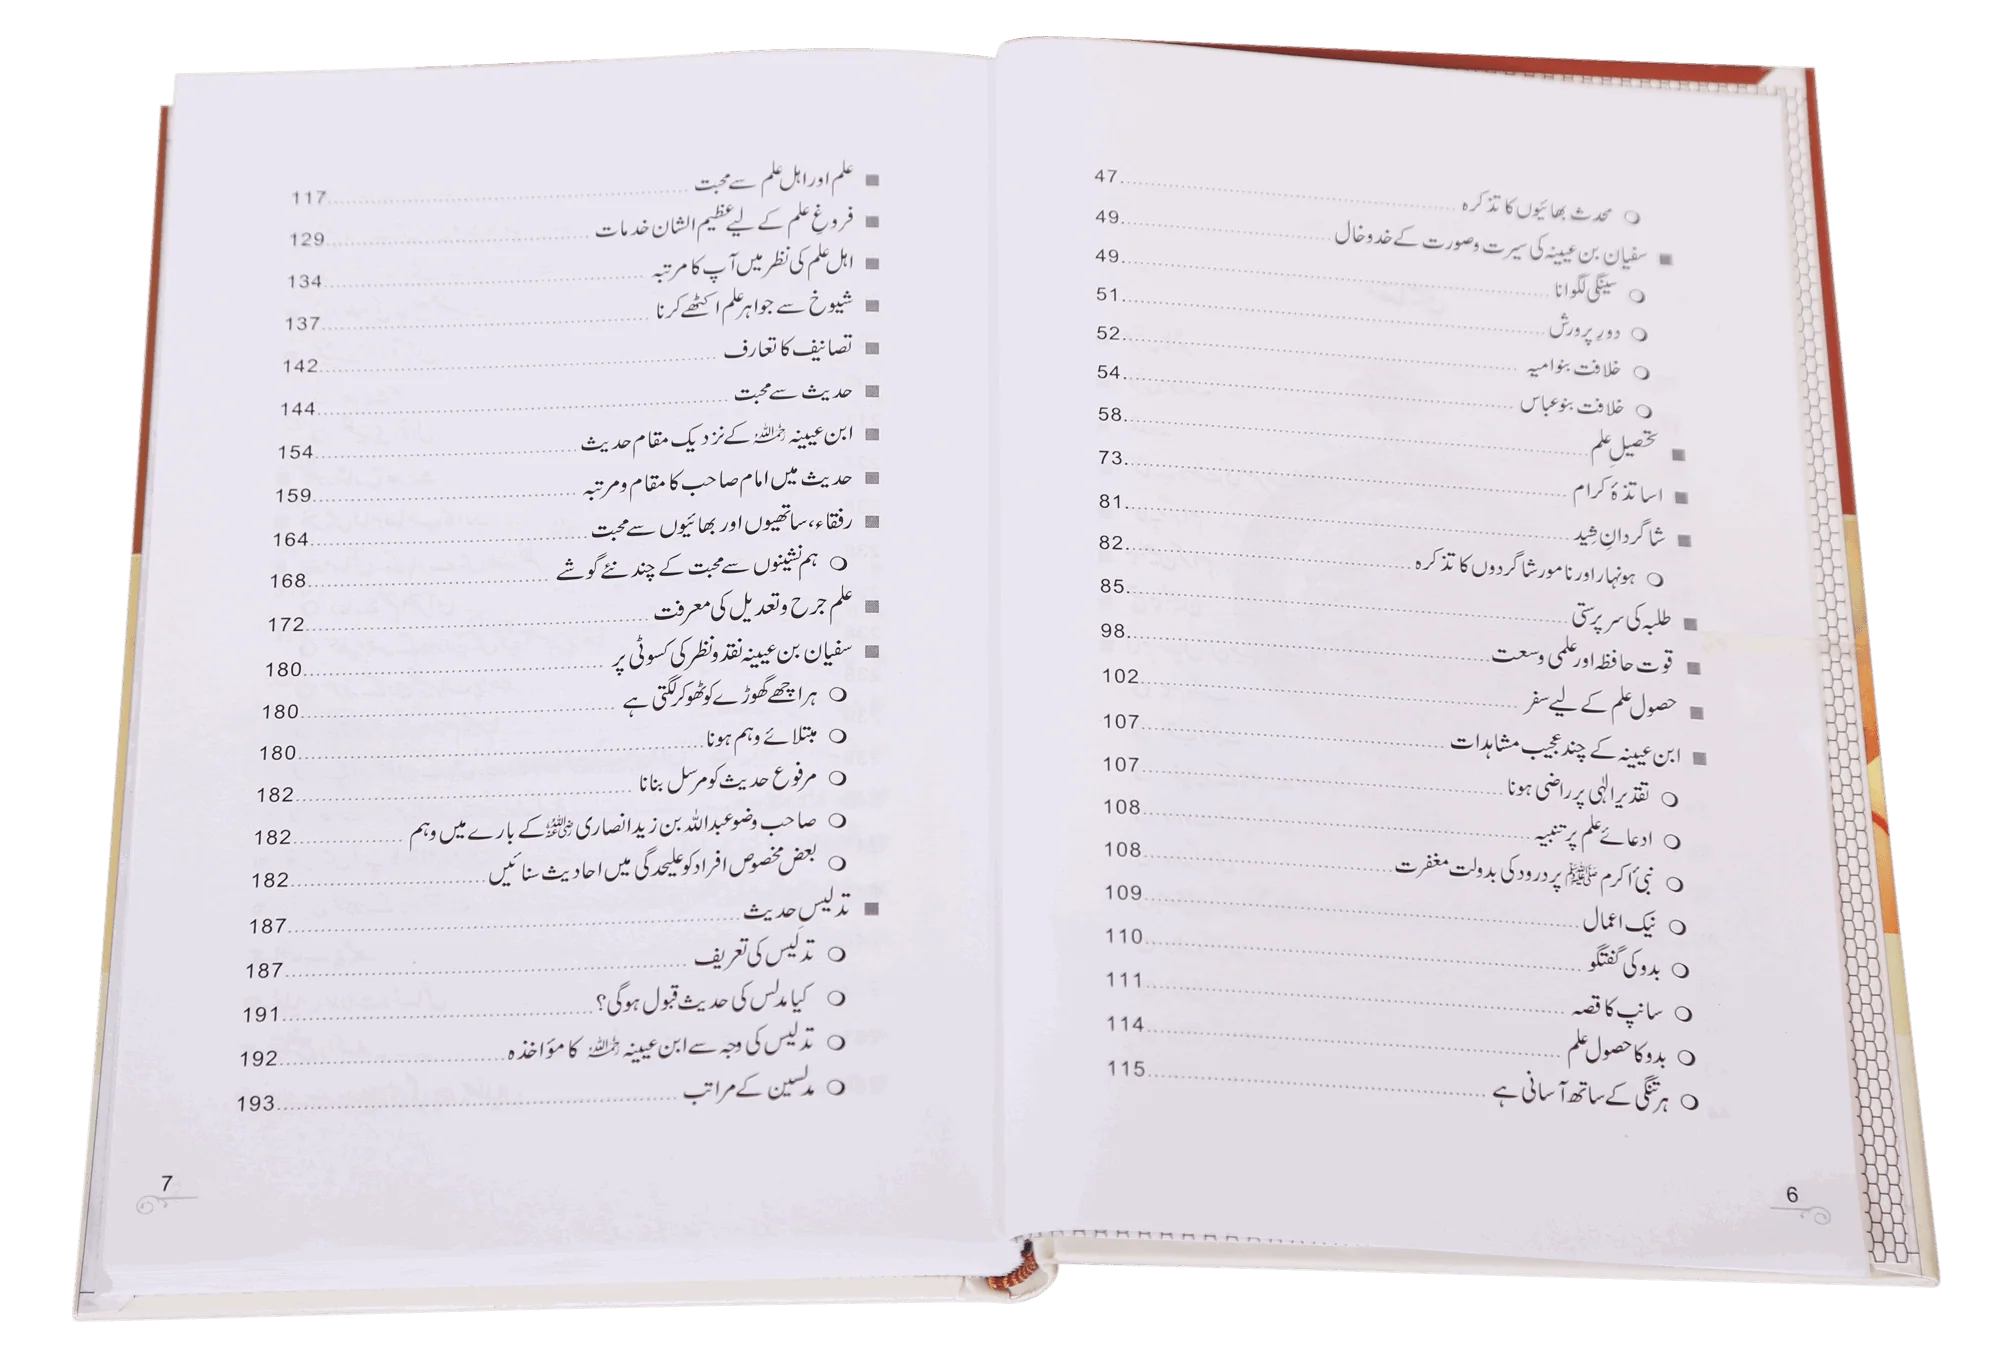 ○ محدث بھائیوں کا تذکرہ ........ 47
■ سفیان بن عیینہ کی سیرت و صورت کے خدوخال ........ 49
○ سینگی لگوانا ........ 49
○ دورِ پرورش ........ 51
○ خلافت بنو امیہ ........ 52
○ خلافت بنو عباس ........ 54
■ تحصیلِ علم ........ 58
■ اساتذۂ کرام ........ 73
■ شاگردانِ شید ........ 81
○ ہونہار اور نامور شاگردوں کا تذکرہ ........ 82
■ طلبہ کی سرپرستی ........ 85
■ قوت حافظہ اور علمی وسعت ........ 98
■ حصول علم کے لیے سفر ........ 102
■ ابن عیینہ کے چند عجیب مشاہدات ........ 107
○ تقدیر الٰہی پر راضی ہونا ........ 107
○ ادعائے علم پر تنبیہ ........ 108
○ نبیٔ اکرم ﷺ پر درود کی بدولت مغفرت ........ 108
○ نیک اعمال ........ 109
○ بدو کی گفتگو ........ 110
○ سانپ کا قصہ ........ 111
○ بدو کا حصول علم ........ 114
○ ہر تنگی کے ساتھ آسانی ہے ........ 115
6
■ علم اور اہل علم سے محبت ........ 117
■ فروغِ علم کے لیے عظیم الشان خدمات ........ 129
■ اہل علم کی نظر میں آپ کا مرتبہ ........ 134
■ شیوخ سے جواہر علم اکٹھے کرنا ........ 137
■ تصانیف کا تعارف ........ 142
■ حدیث سے محبت ........ 144
■ ابن عیینہ رحمہ اللہ کے نزدیک مقام حدیث ........ 154
■ حدیث میں امام صاحب کا مقام و مرتبہ ........ 159
■ رفقاء، ساتھیوں اور بھائیوں سے محبت ........ 164
○ ہم نشینوں سے محبت کے چند نئے گوشے ........ 168
■ علم جرح و تعدیل کی معرفت ........ 172
■ سفیان بن عیینہ نقد و نظر کی کسوٹی پر ........ 180
○ ہر اچھے گھوڑے کو ٹھوکر لگتی ہے ........ 180
○ مبتلائے وہم ہونا ........ 180
○ مرفوع حدیث کو مرسل بنانا ........ 182
○ صاحب وضو عبداللہ بن زید انصاری رضی اللہ عنہ کے بارے میں وہم ........ 182
○ بعض مخصوص افراد کو علیحدگی میں احادیث سنائیں ........ 182
■ تدلیسِ حدیث ........ 187
○ تدلیس کی تعریف ........ 187
○ کیا مدلس کی حدیث قبول ہوگی؟ ........ 191
○ تدلیس کی وجہ سے ابن عیینہ رحمہ اللہ کا مؤاخذہ ........ 192
○ مدلسین کے مراتب ........ 193
7